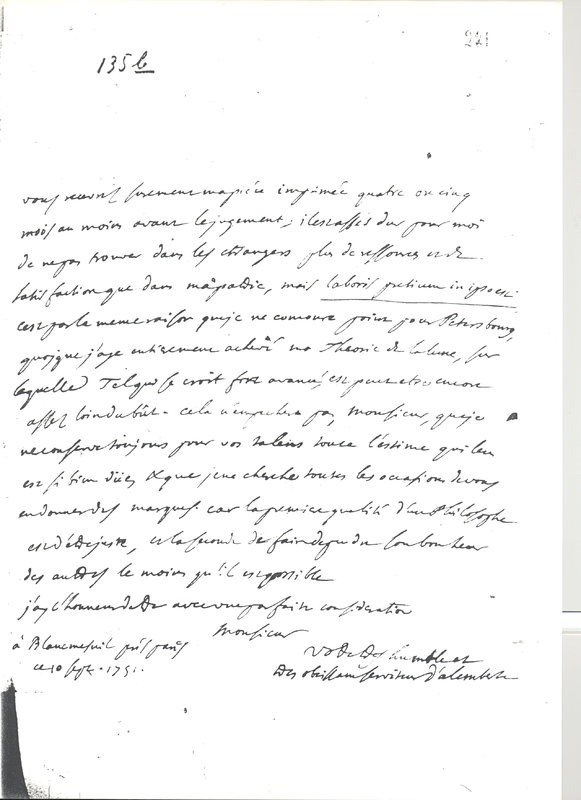 221
135 b
vous recevrez surement ma piéce imprimée quatre ou cinq
mois au moins avant le jugement; il est assés dur pour moi
de ne pas trouver dans les étrangers plus de ressources et de
satisfaction que dans ma patrie, mais laboris pretium in ipso est.
c'est par la meme raison que je ne concours point pour Petersbourg,
quoique j'aye entierement achevé ma Theorie de la lune, sur
laquelle Tel qui se croit fort avancé, est peut etre encore
assez loin du bût. cela n'empechera pas, Monsieur, que je
ne conserve toujours pour vos talens toute l'estime qui leur
est si bien düe, & que je ne cherche toutes les occasions de vous
en donner des marques. car la premiere qualité d'un Philosophe
est d'être juste, et la seconde de faire du bonheur
des autres le moins qu'il est possible
j'ay l'honneur d'etre avec une parfaite consideration
Monsieur
à Blancmesnil près paris
ce 10 sept. 1751.
votre tres humble et
tres obeissant serviteur d'alembert